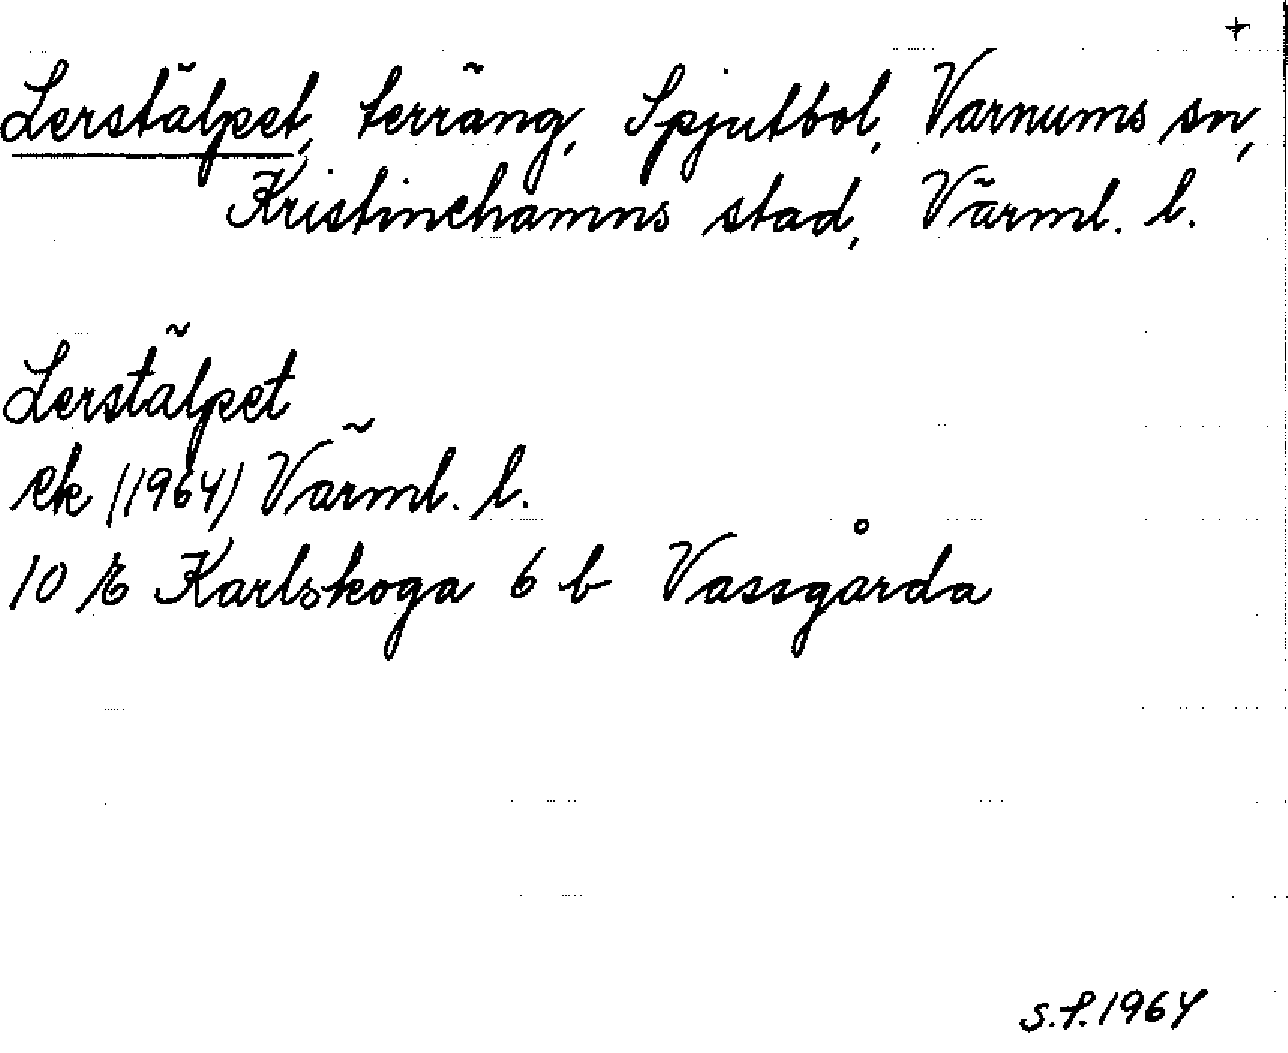 +
Lerstälpet, terräng, Spjutbol, Varnums sn,
Kristinehamns stad, Värml. l.
Lerstälpet
ek (1964) Värml. l.
10 E Karlskoga 6 b Vassgårda
S.F. 1964